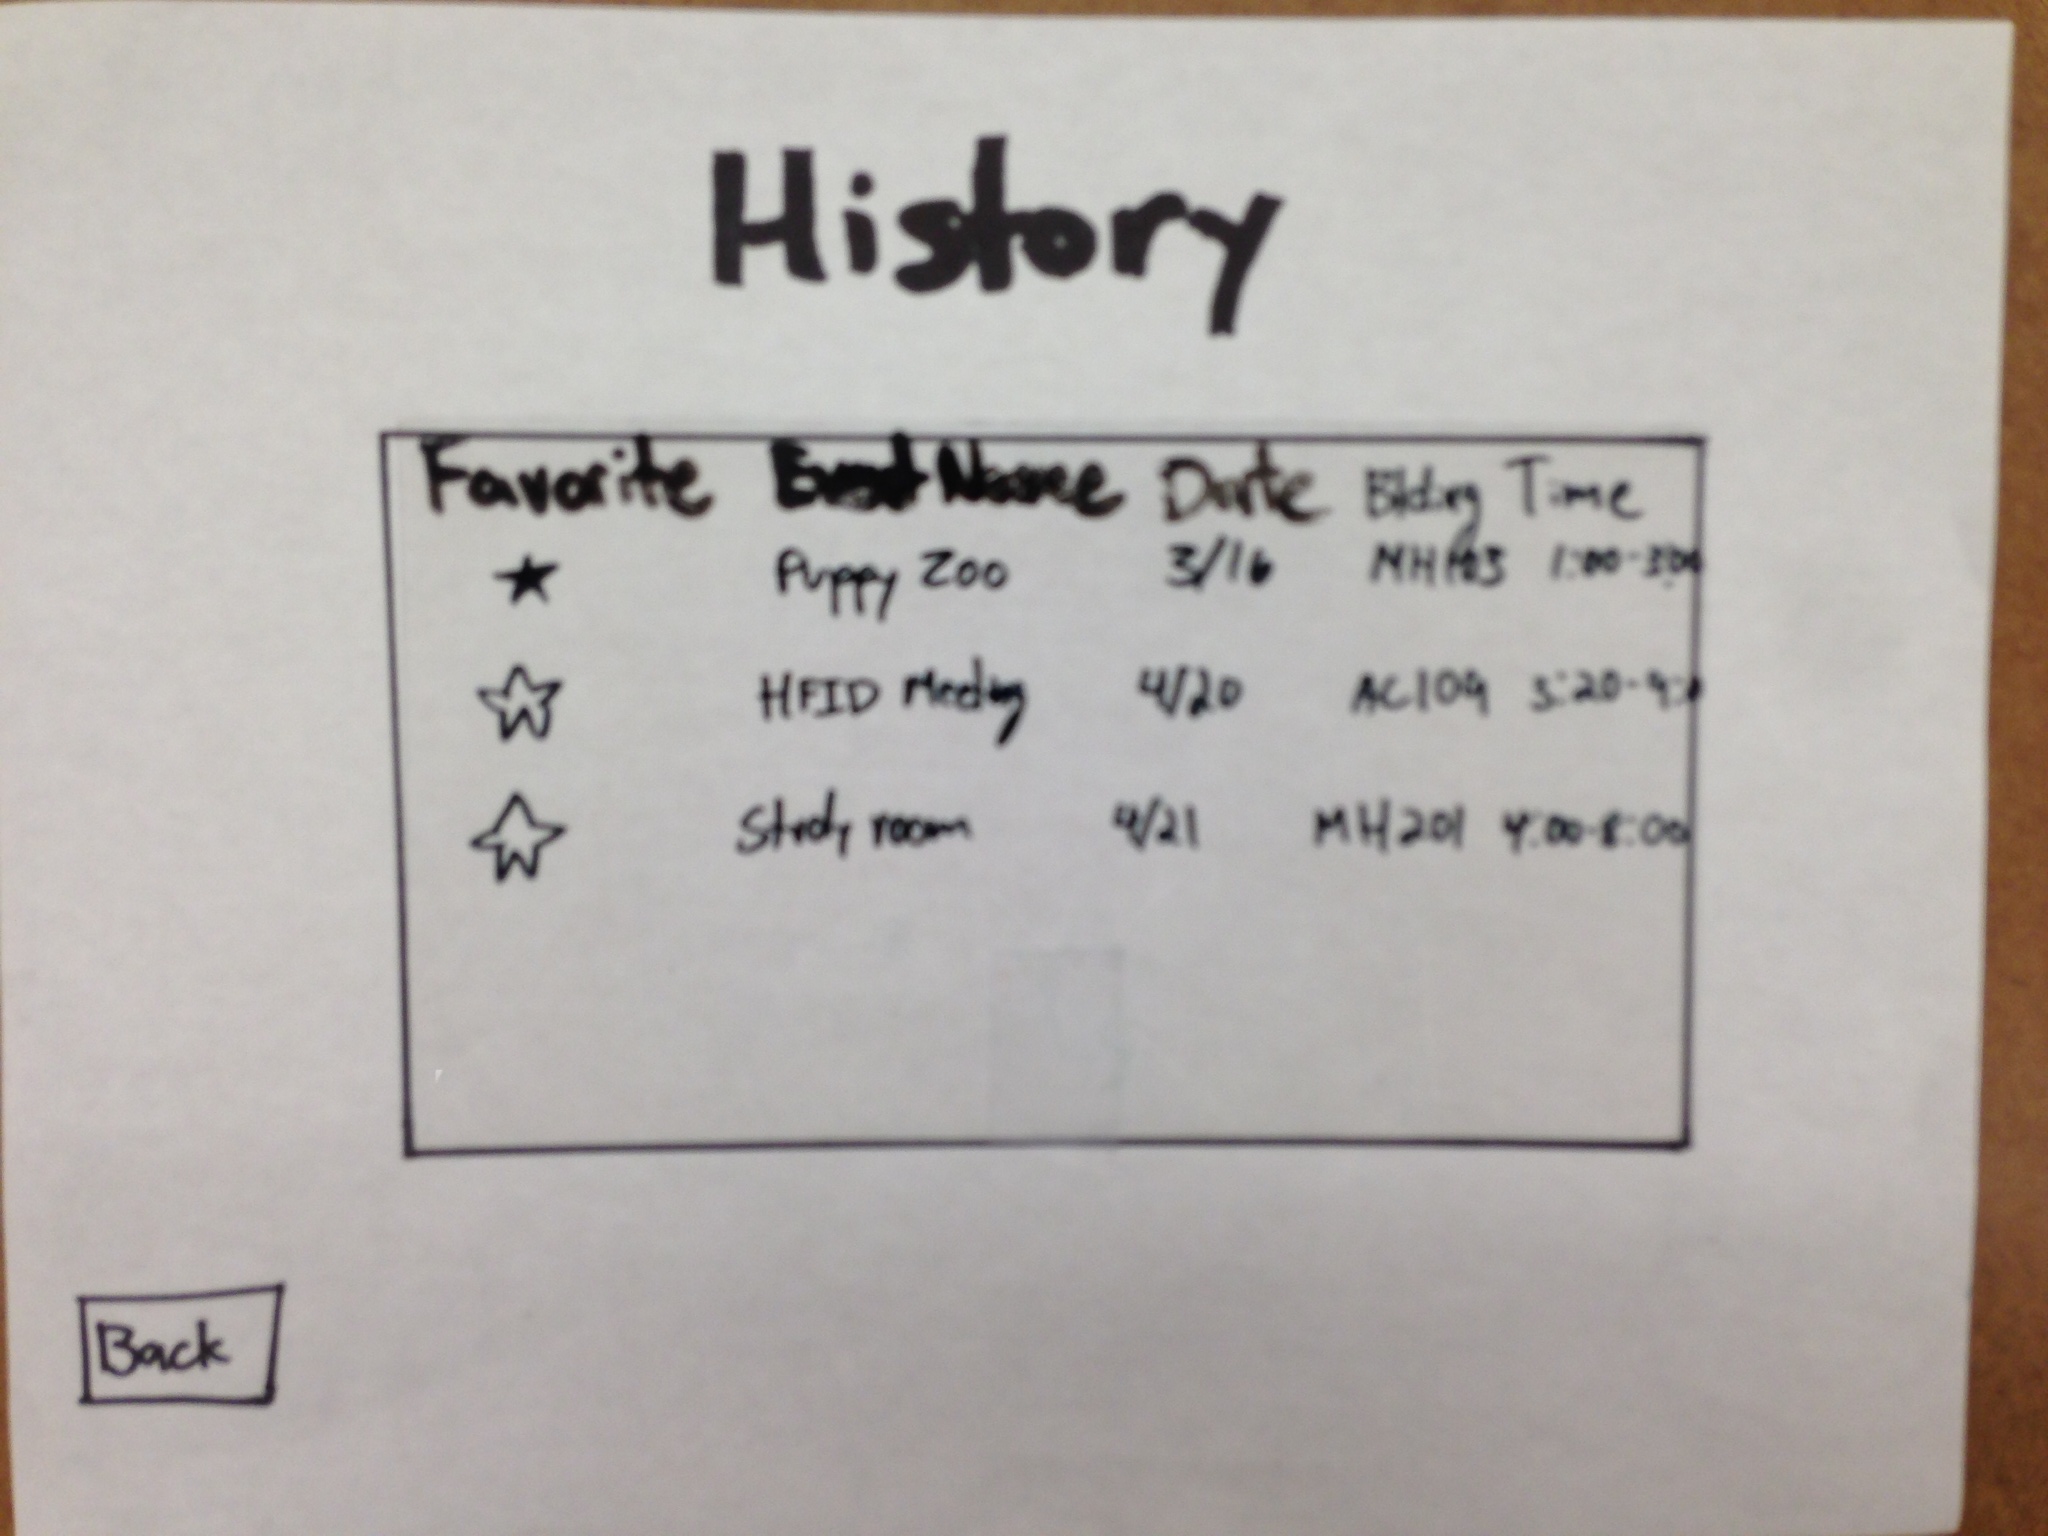 History
Favorite Event Name Date Bilding Time
★ Puppy Zoo 3/16 MH103 1:00-3:00
☆ HFID Meeting 4/20 AC109 3:20-
☆ Study room 4/21 MH201 4:00-8:00
Back